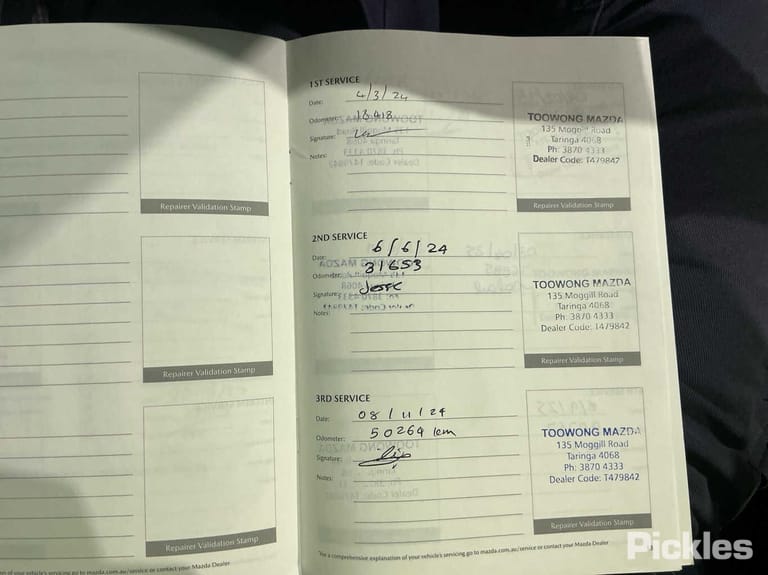 Repairer Validation Stamp
Repairer Validation Stamp
Repairer Validation Stamp
of your vehicle's servicing go to mazda.com.au/service or contact your Mazda Dealer
1ST SERVICE
Date: 4/3/24
Odometer: 18418
Signature:
Notes:
TOOWONG MAZDA
135 Moggill Road
Taringa 4068
Ph: 3870 4333
Dealer Code: T479842
Repairer Validation Stamp
2ND SERVICE
Date: 6/6/24
Odometer: 31653
Signature: Jesse
Notes:
TOOWONG MAZDA
135 Moggill Road
Taringa 4068
Ph: 3870 4333
Dealer Code: T479842
Repairer Validation Stamp
3RD SERVICE
Date: 08/11/24
Odometer: 50264 km
Signature:
Notes:
TOOWONG MAZDA
135 Moggill Road
Taringa 4068
Ph: 3870 4333
Dealer Code: T479842
Repairer Validation Stamp
*For a comprehensive explanation of your vehicle's servicing go to mazda.com.au/service or contact your Mazda Dealer
Pickles